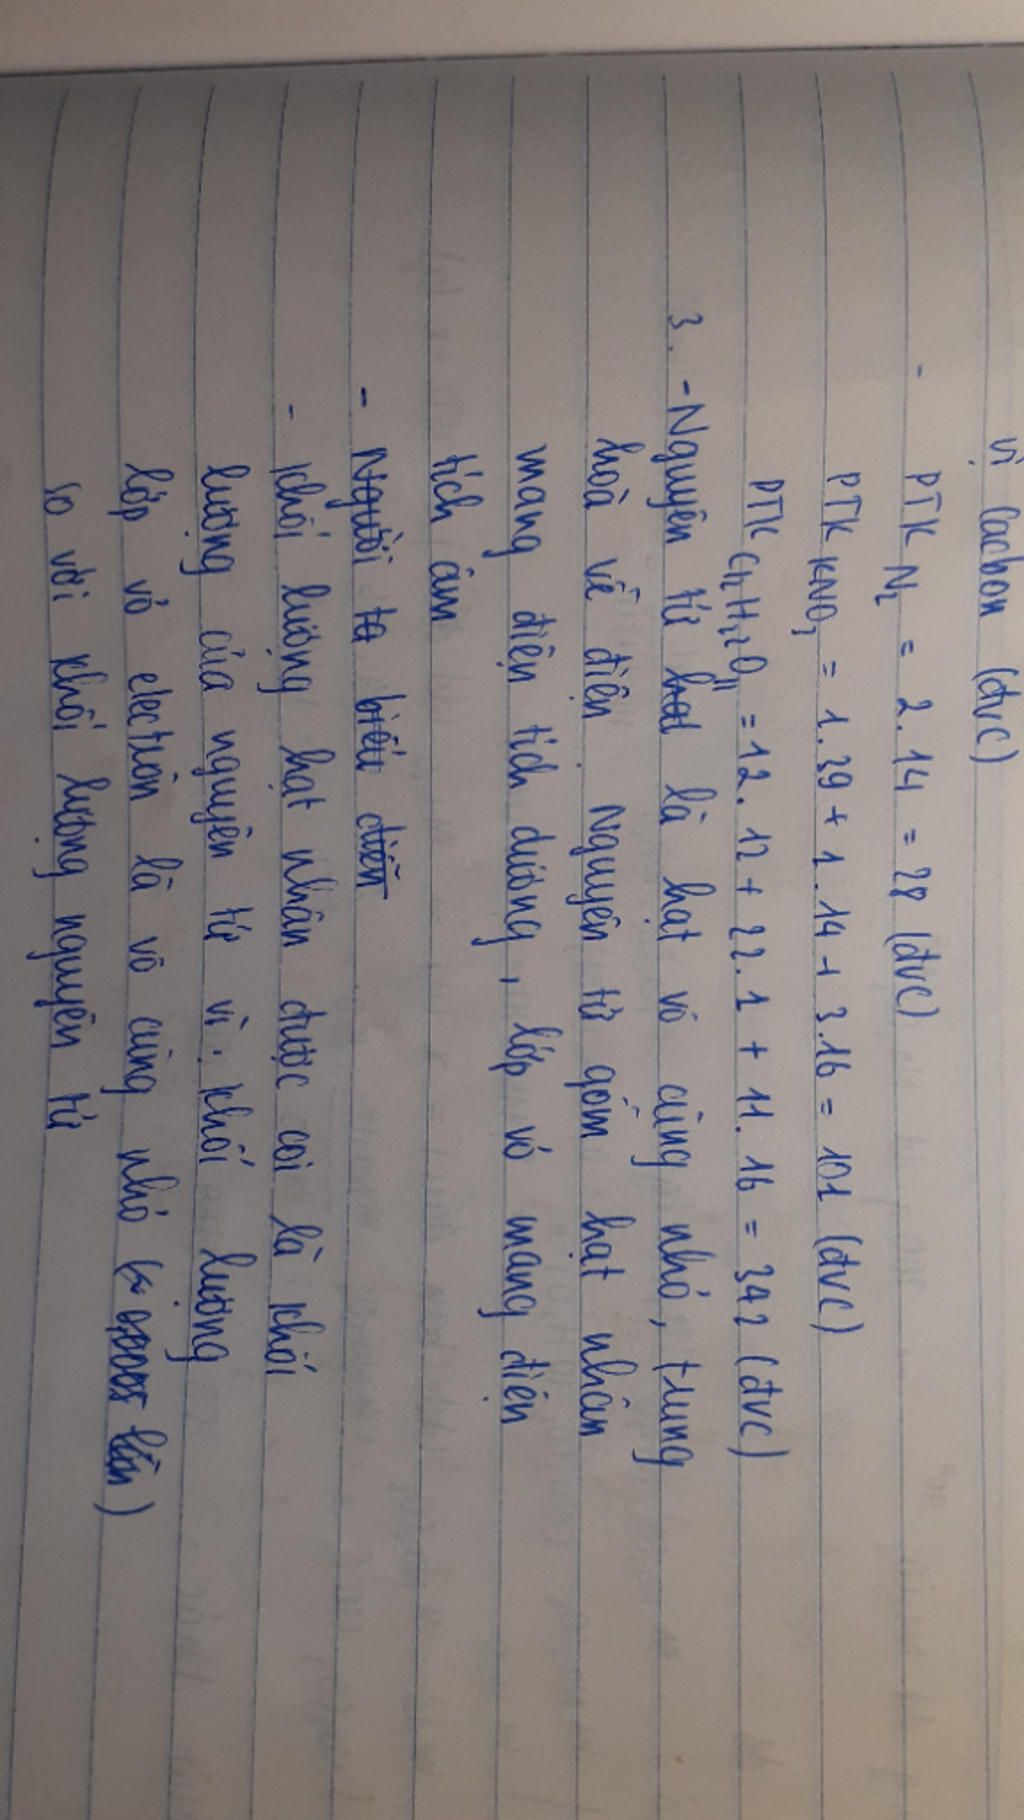 vị cacbon (đvC)
- PTK N₂ = 2.14 = 28 (đvC)
PTK KNO₃ = 1.39 + 1.14 + 3.16 = 101 (đvC)
PTK C₁₂H₂₂O₁₁ = 12.12 + 22.1 + 11.16 = 342 (đvC)
3. - Nguyên tử là hạt vô cùng nhỏ, trung
hoà về điện. Nguyên tử gồm hạt nhân
mang điện tích dương, lớp vỏ mang điện
tích âm
- Người ta biểu diễn
- Khối lượng hạt nhân được coi là khối
lượng của nguyên tử vì: khối lượng
lớp vỏ electron là vô cùng nhỏ (≈ 0,0005 lần)
so với khối lượng nguyên tử